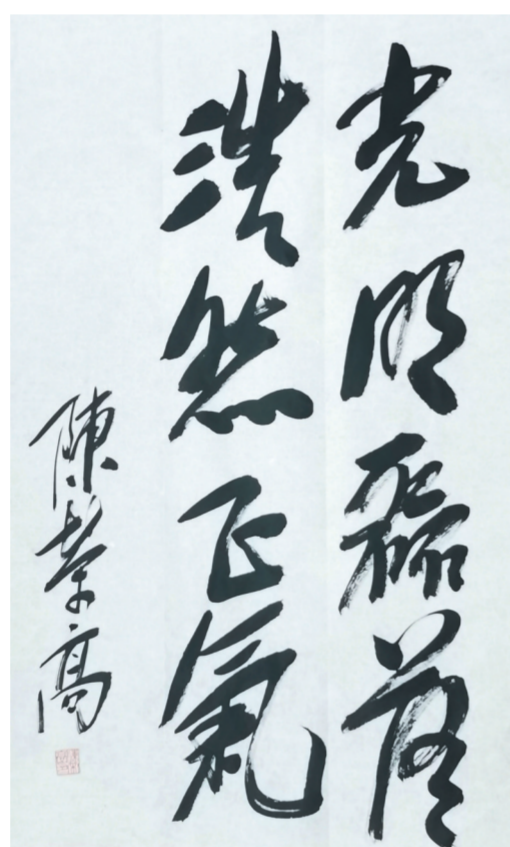 光明磊落
浩然正氣
陳榮高